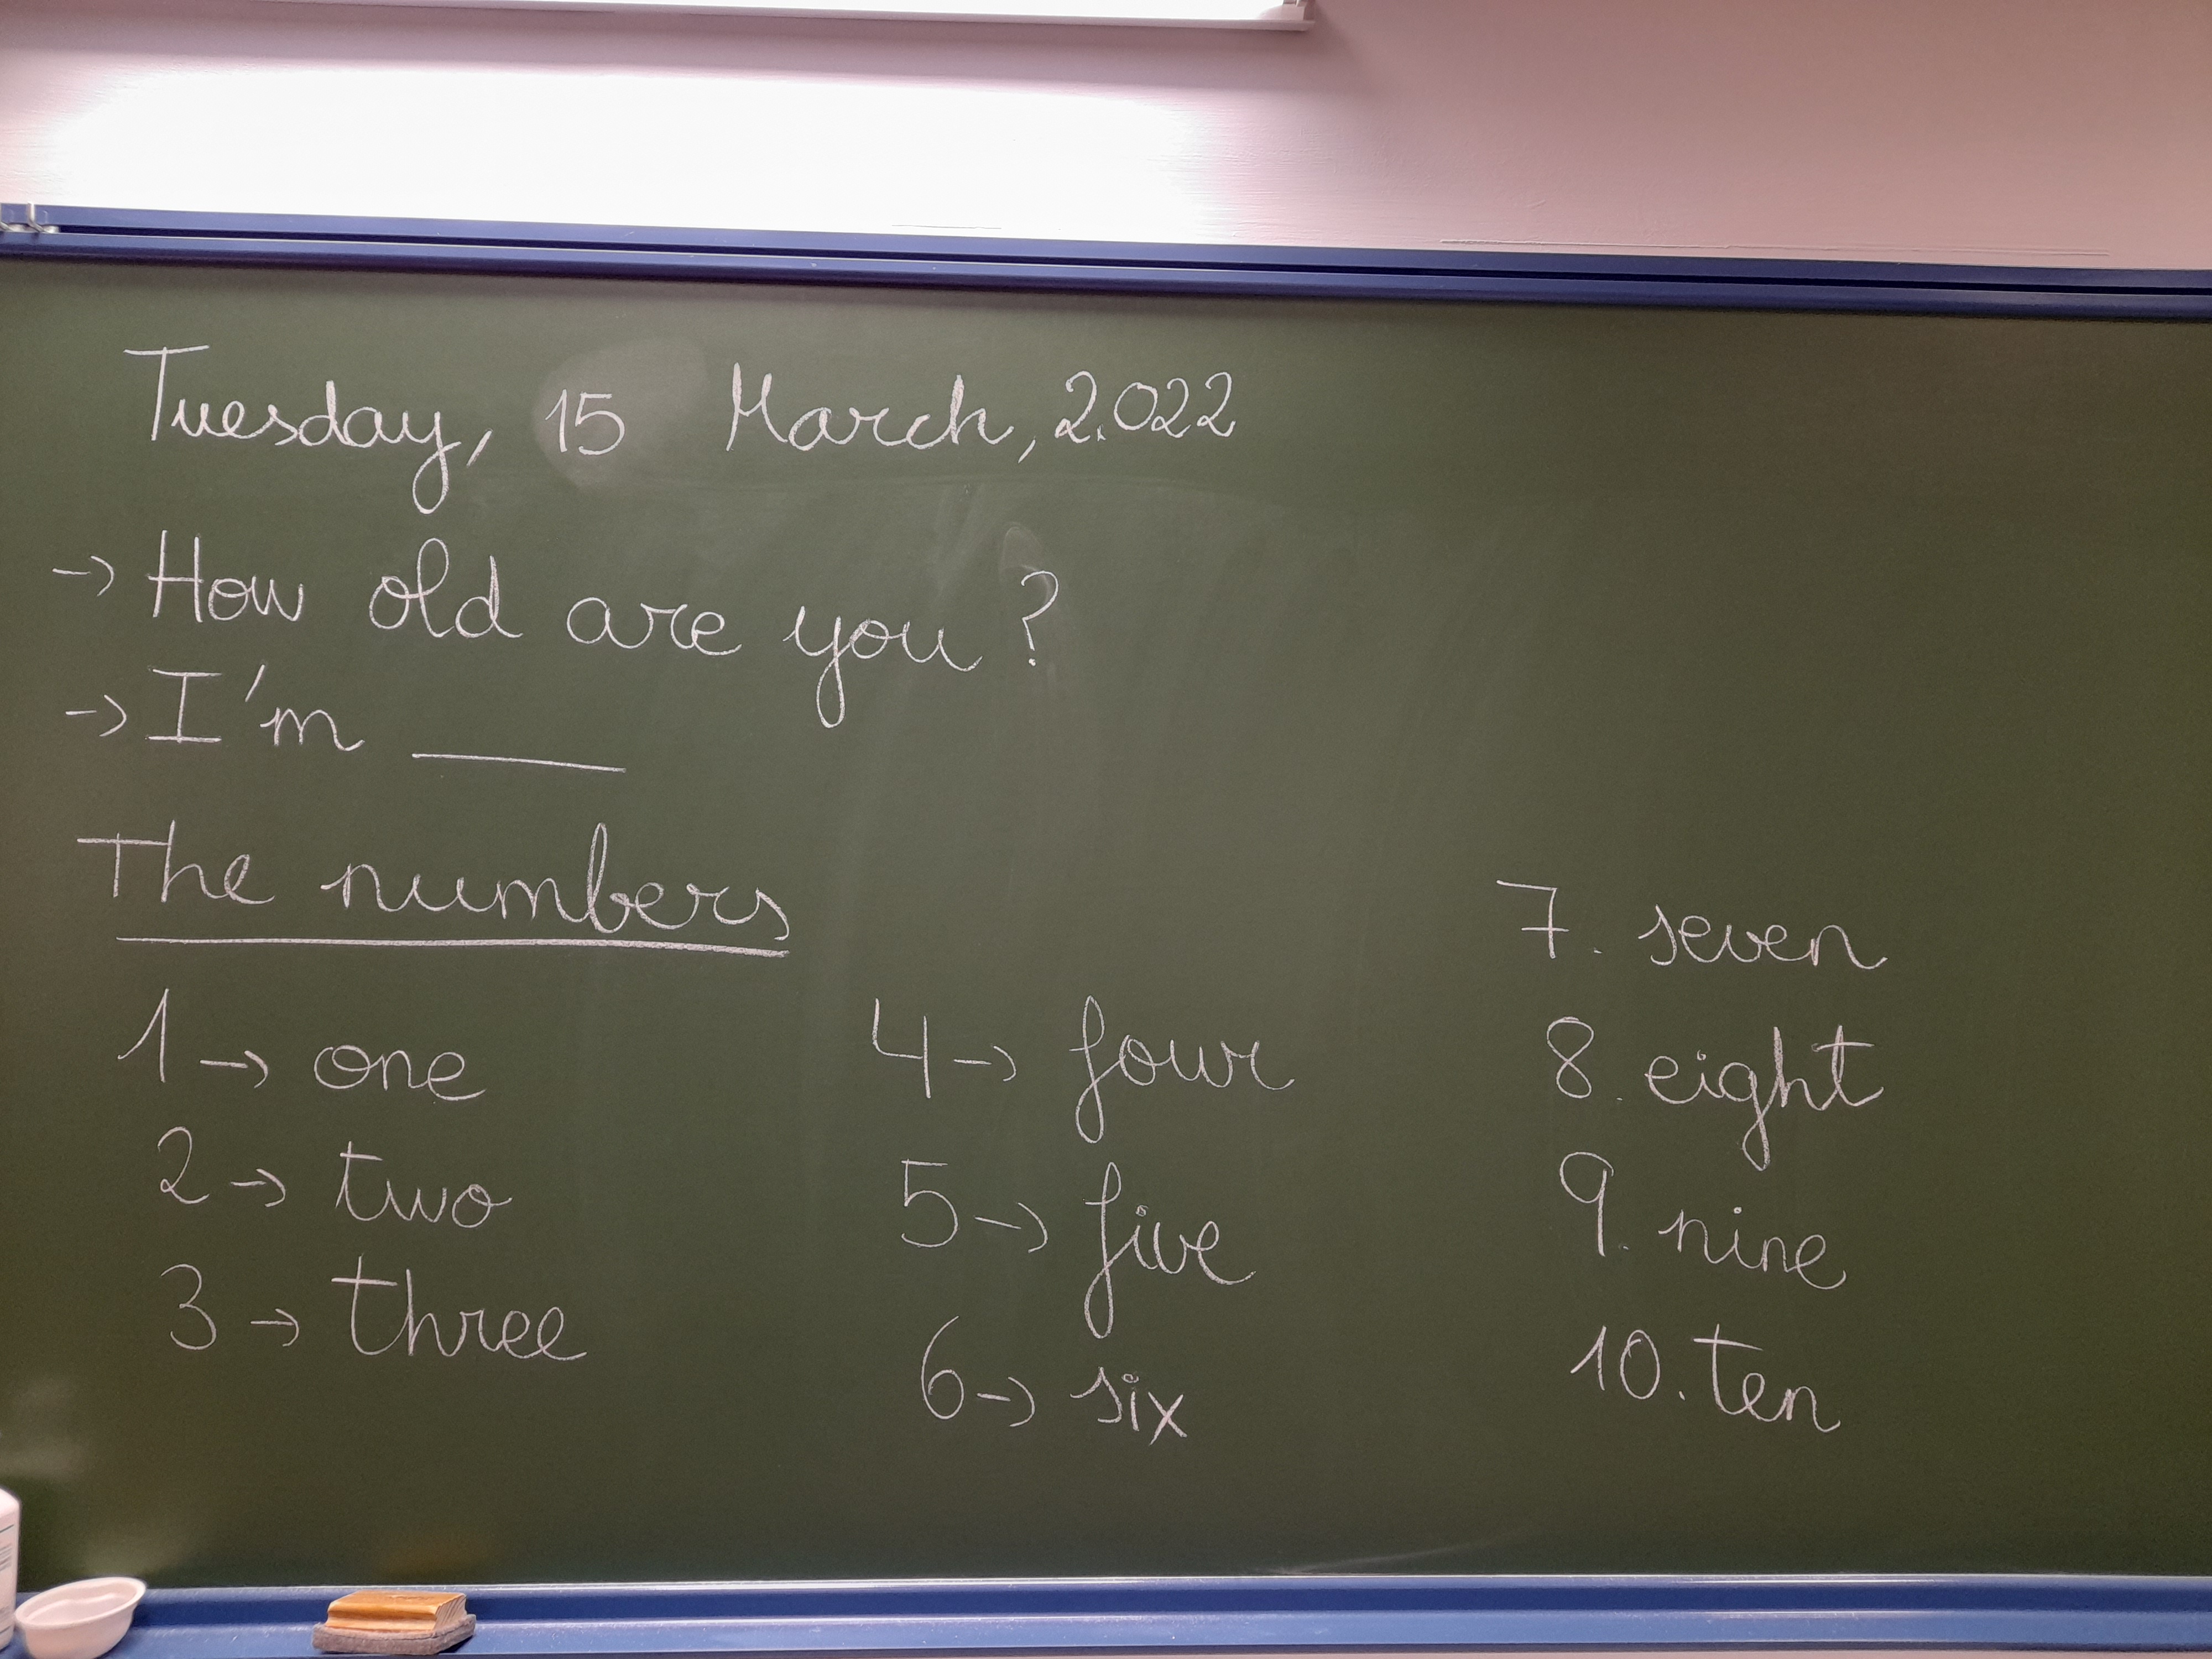 Tuesday, 15 March, 2.022
-> How old are you?
-> I'm ____
The numbers
1 -> one
2 -> two
3 -> three
4 -> four
5 -> five
6 -> six
7. seven
8. eight
9. nine
10. ten